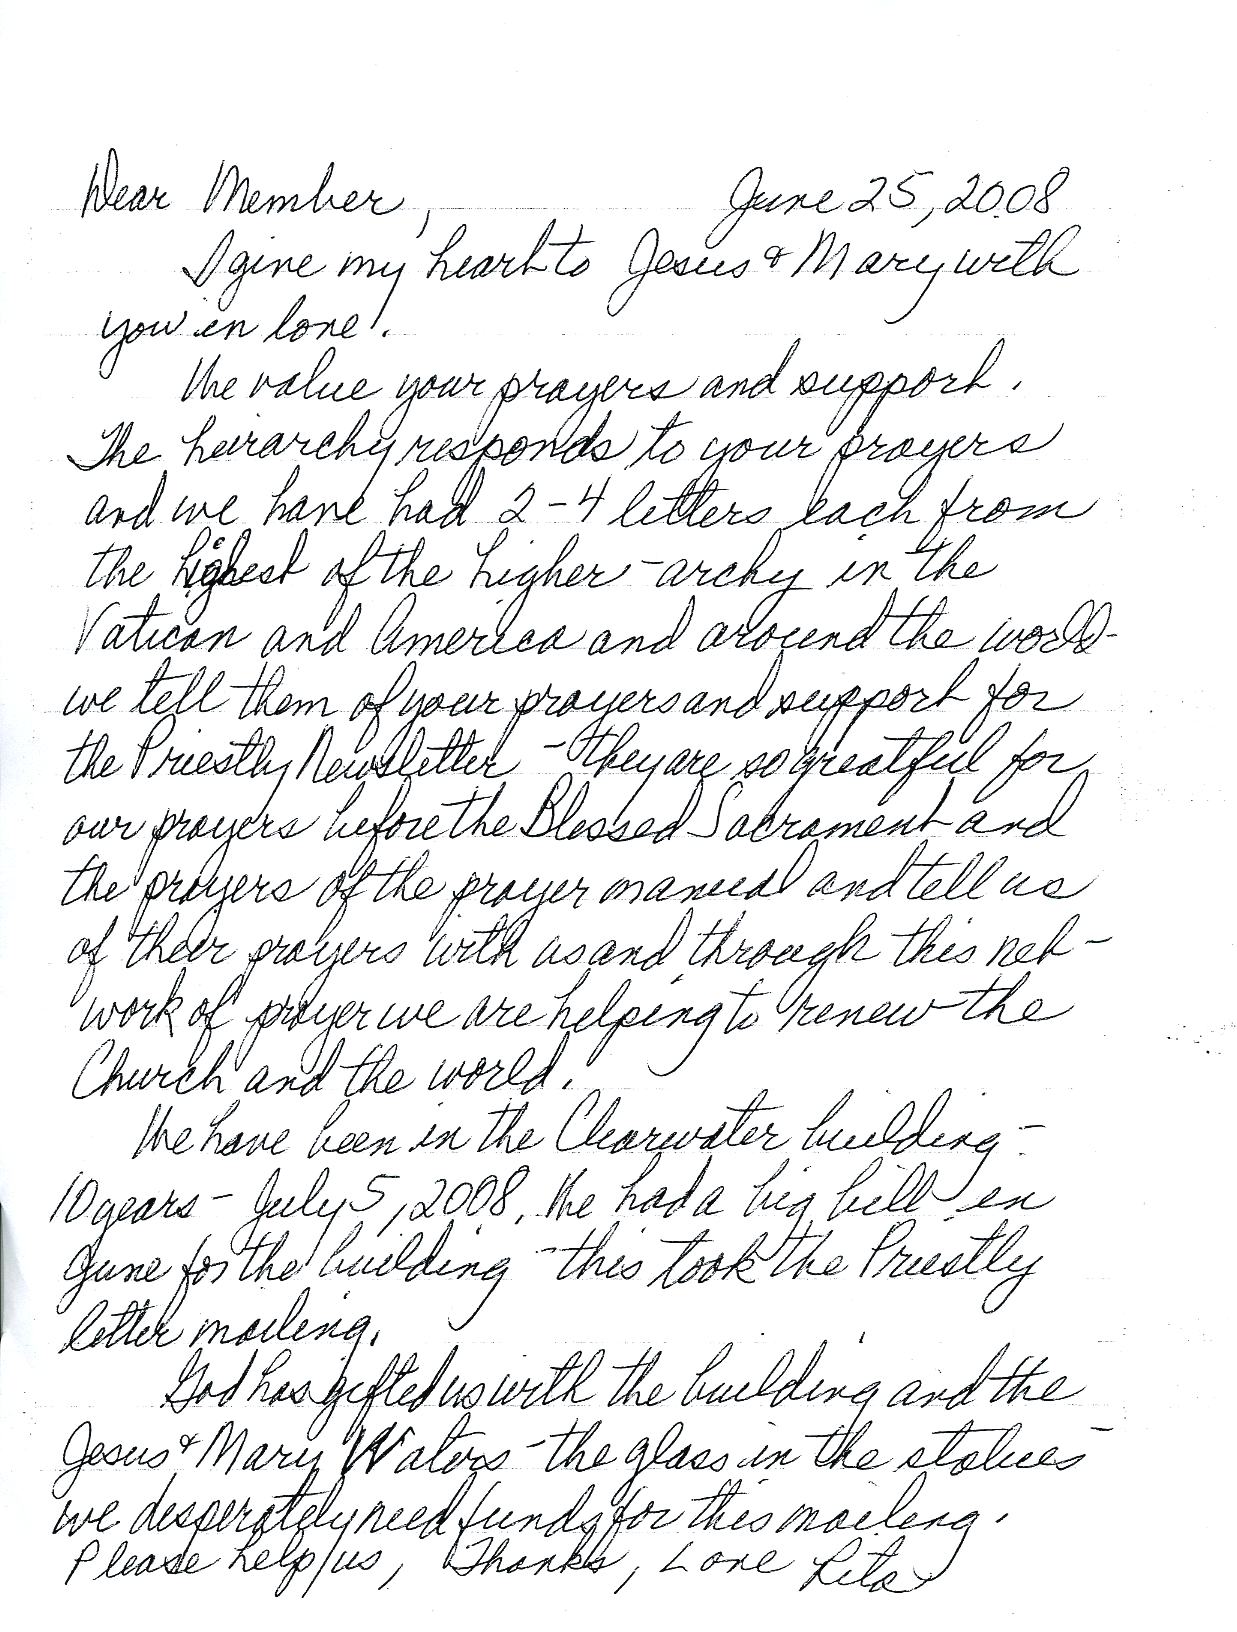 Dear Member, June 25, 2008
I give my heart to Jesus & Mary with
you in love!
We value your prayers and support.
The heirarchy responds to your prayers
and we have had 2-4 letters each from
the highest of the higher-archy in the
Vatican and America and around the world-
we tell them of your prayers and support for
the Priestly Newsletter - they are so greatful for
our prayers before the Blessed Sacrament and
the prayers of the prayer manual and tell us
of their prayers with us and through this net-
work of prayer we are helping to renew the
Church and the world.
We have been in the Clearwater building -
10 years - July 5, 2008. We had a big bill in
June for the building - this took the Priestly
letter mailing.
God has gifted us with the building and the
Jesus & Mary Waters - the glass in the statues -
we desperately need funds for this mailing.
Please help us, Thanks, Love Rita